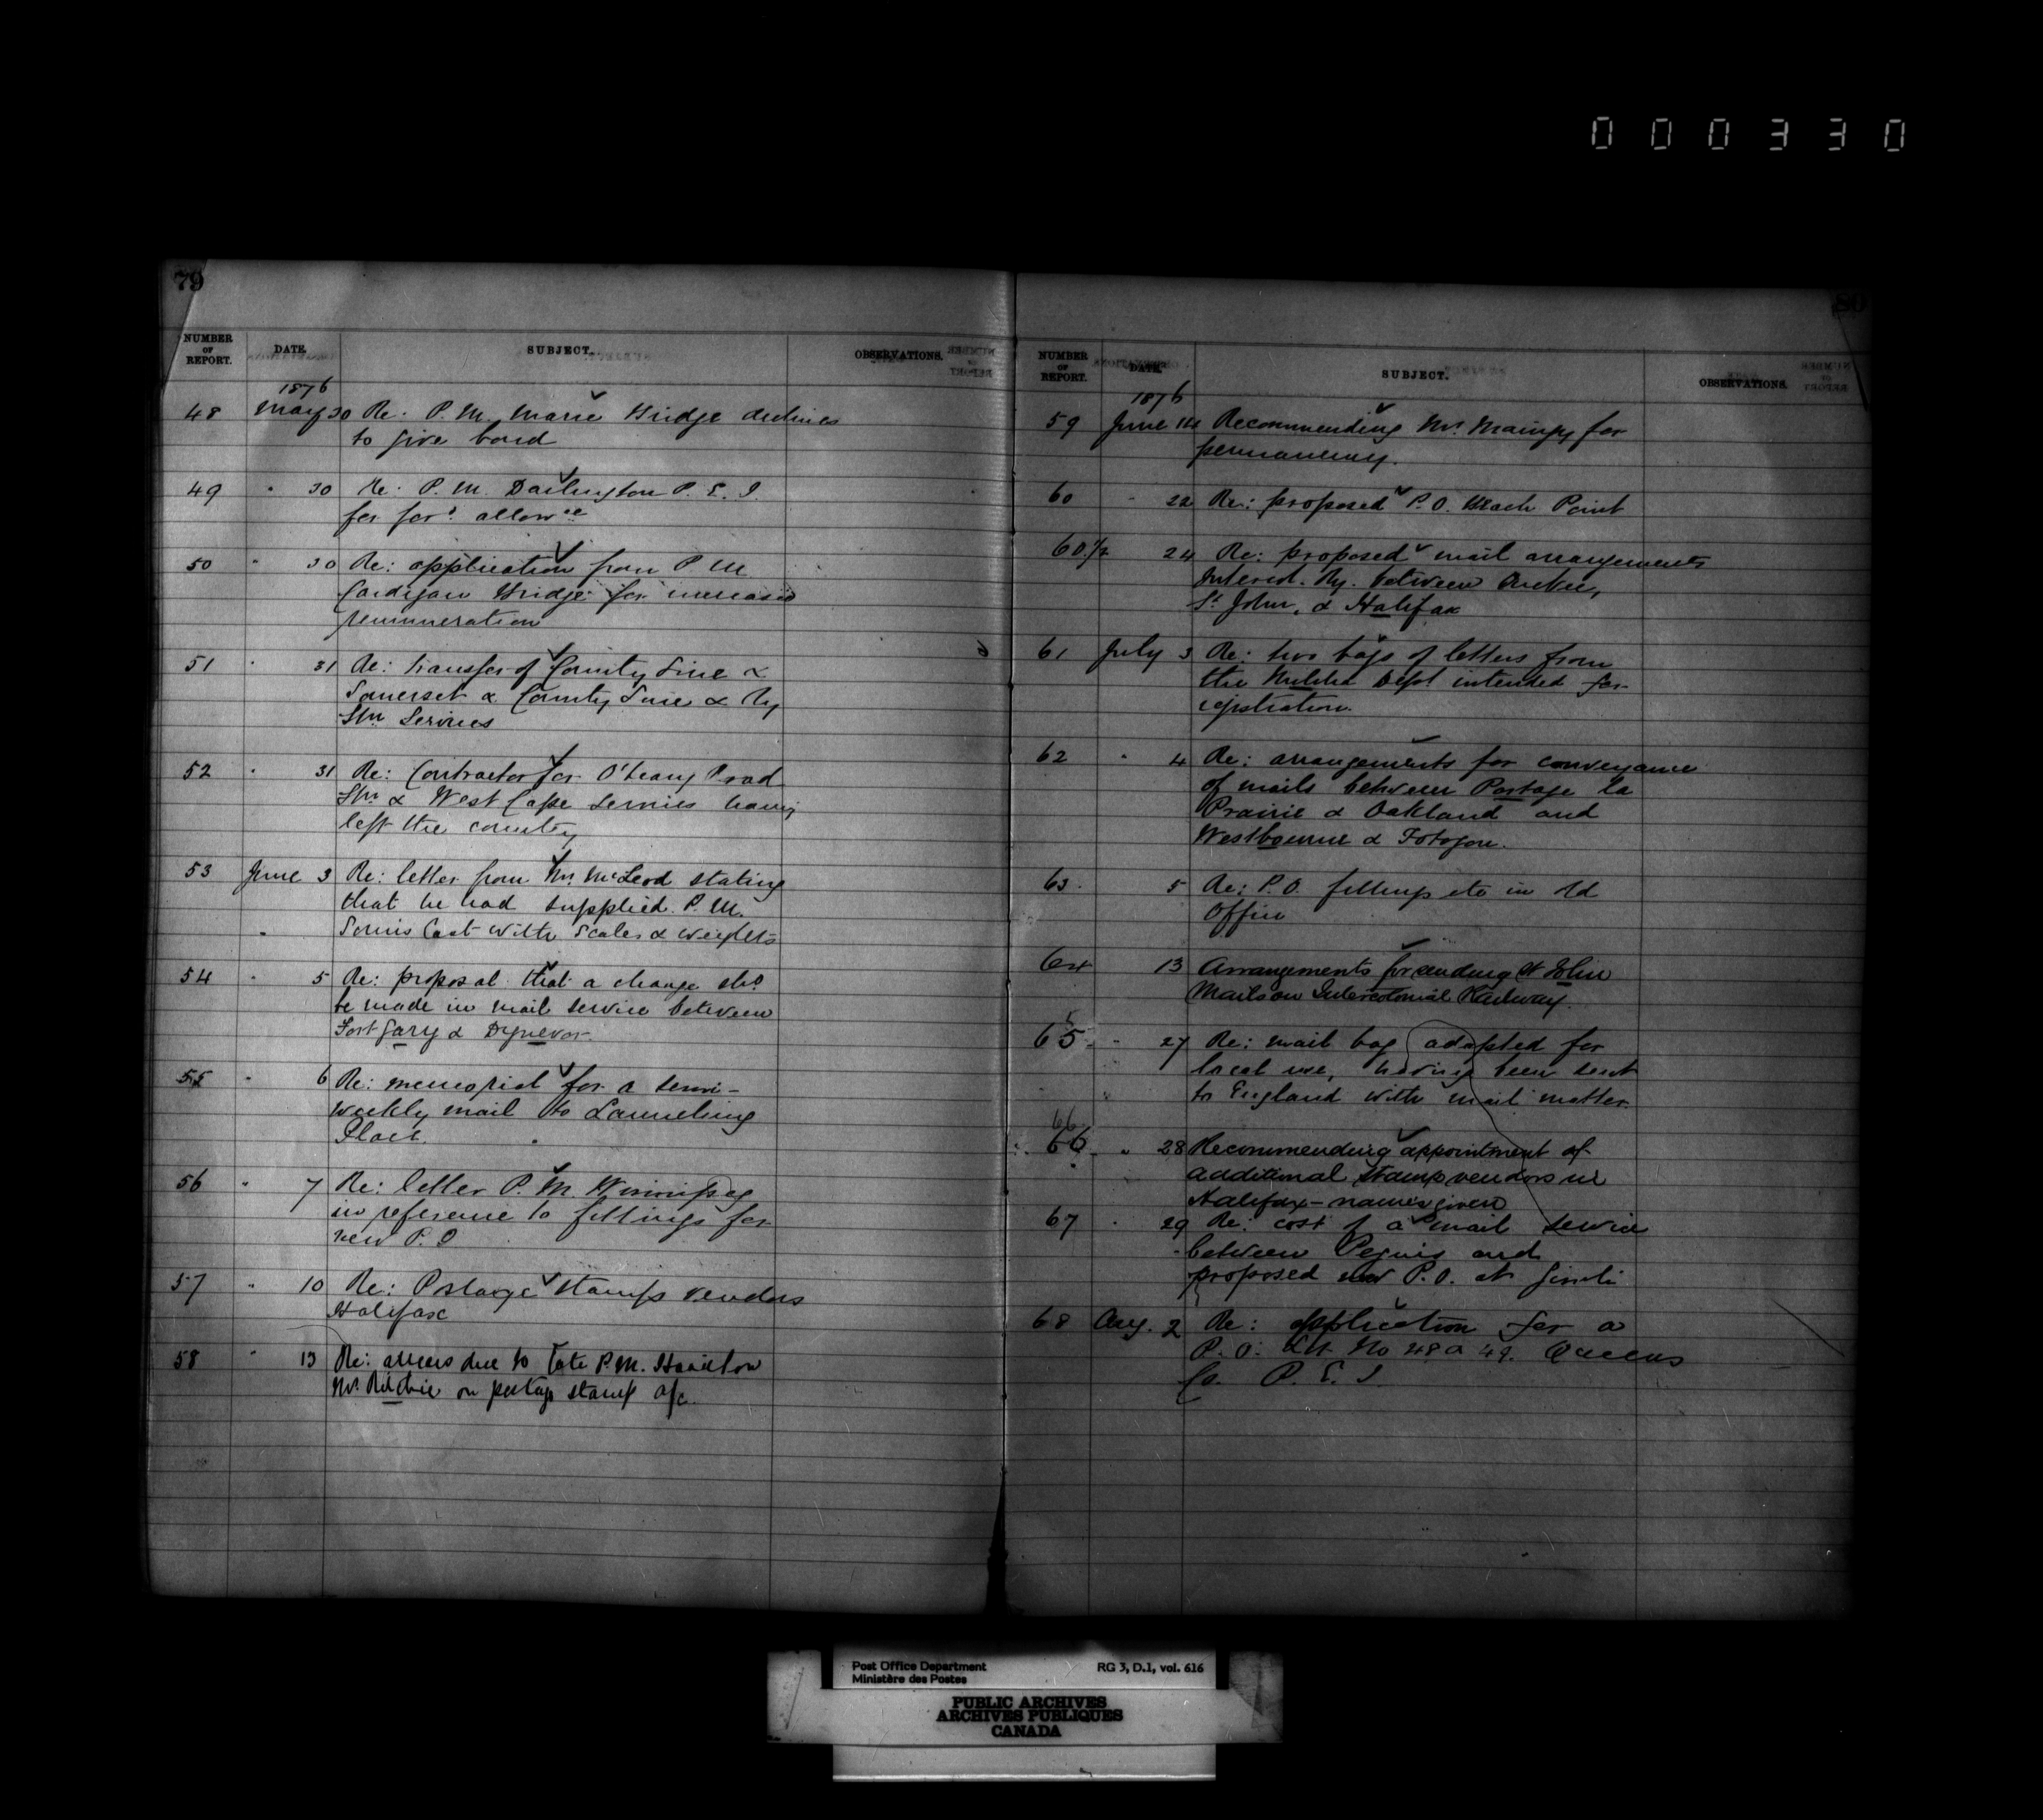 000330
79
NUMBER OF REPORT. DATE. SUBJECT. OBSERVATIONS.
1876
48 May 30 Re: P. M. Marie Bridge declines
to give bond
49 " 30 Re: P. M. Darlington P. E. I.
for for.d allow.ce
50 " 30 Re: application from P M
Cardigan Bridge for increased
remuneration
51 " 31 Re: transfer of County Line &
Somerset & County Line & Ry
Stn Services
52 " 31 Re: Contractor for O'Leary Road
Stn & West Cape Services having
left the country
53 June 3 Re: letter from Mr. McLeod stating
that he had supplied P. M.
Souris East with Scales & Weights
54 " 5 Re: proposal that a change shd
be made in mail service between
Fort Gary & Dynevor.
55 " 6 Re: memorial for a semi-
weekly mail to Launching
Place.
56 " 7 Re: letter P. M. Winnipeg
in reference to fittings for
new P. O
57 " 10 Re: Postage Stamps vendors
Halifax
58 " 13 Re: arrears due to late P.M. Hamilton
Mr. Ritchie on postage stamp a/c.
80
NUMBER OF REPORT. DATE. SUBJECT. OBSERVATIONS.
1876
59 June 14 Recommending Mr. for
permanency.
60 " 22 Re: proposed P. O. Beach Point
60.1/2 24 Re: proposed mail arrangements
Intercol. Ry. between Quebec,
St John, & Halifax
61 July 3 Re: two bags of letters from
the Militia Dept intended for
registration.
62 " 4 Re: arrangements for conveyance
of mails between Portage la
Prairie & Oakland and
Westbourne & Totogon.
63. 5 Re: P.O. fittings etc in Id
Office
64 13 Arrangements for sending St John
Mails on Intercolonial Railway.
5
65- " 27 Re: mail bag adapted for
local use, having been sent
to England with mail matter.
66
66- " 28 Recommending appointment of
additional stamp vendors in
Halifax - names given
67 " 29 Re: cost of a mail service
between Peguis and
proposed new P.O. at Gimli
68 Aug. 2 Re: application for a
P. O: Lot No 48 a 49. Queens
Co. P. E. I
Post Office Department RG 3, D.1, vol. 616
Ministère des Postes
PUBLIC ARCHIVES
ARCHIVES PUBLIQUES
CANADA